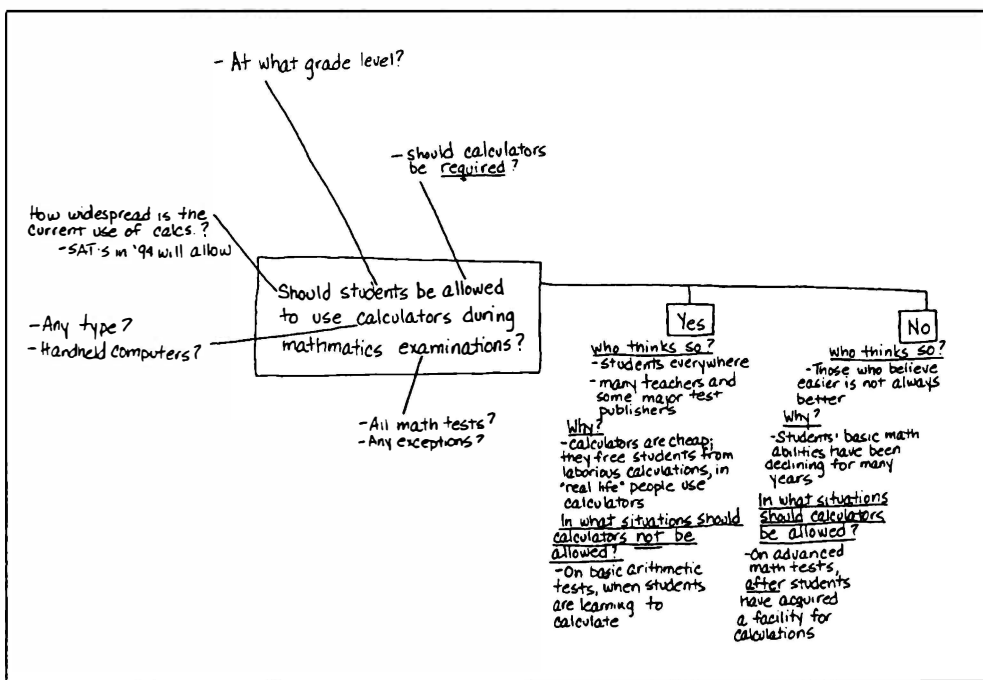 - At what grade level?
- should calculators
be required?
How widespread is the
current use of calcs.?
- SAT's in '94 will allow
Should students be allowed
to use calculators during
mathmatics examinations?
- Any type?
- Handheld computers?
- All math tests?
- Any exceptions?
Yes
who thinks so?
- Students everywhere
- many teachers and
some major test
publishers
Why?
- calculators are cheap;
they free students from
laborious calculations, in
"real life" people use
calculators
In what situations should
calculators not be
allowed?
- On basic arithmetic
tests, when students
are learning to
calculate
No
who thinks so?
- Those who believe
easier is not always
better
Why?
- Students' basic math
abilities have been
declining for many
years
In what situations
should calculators
be allowed?
- On advanced
math tests,
after students
have acquired
a facility for
calculations